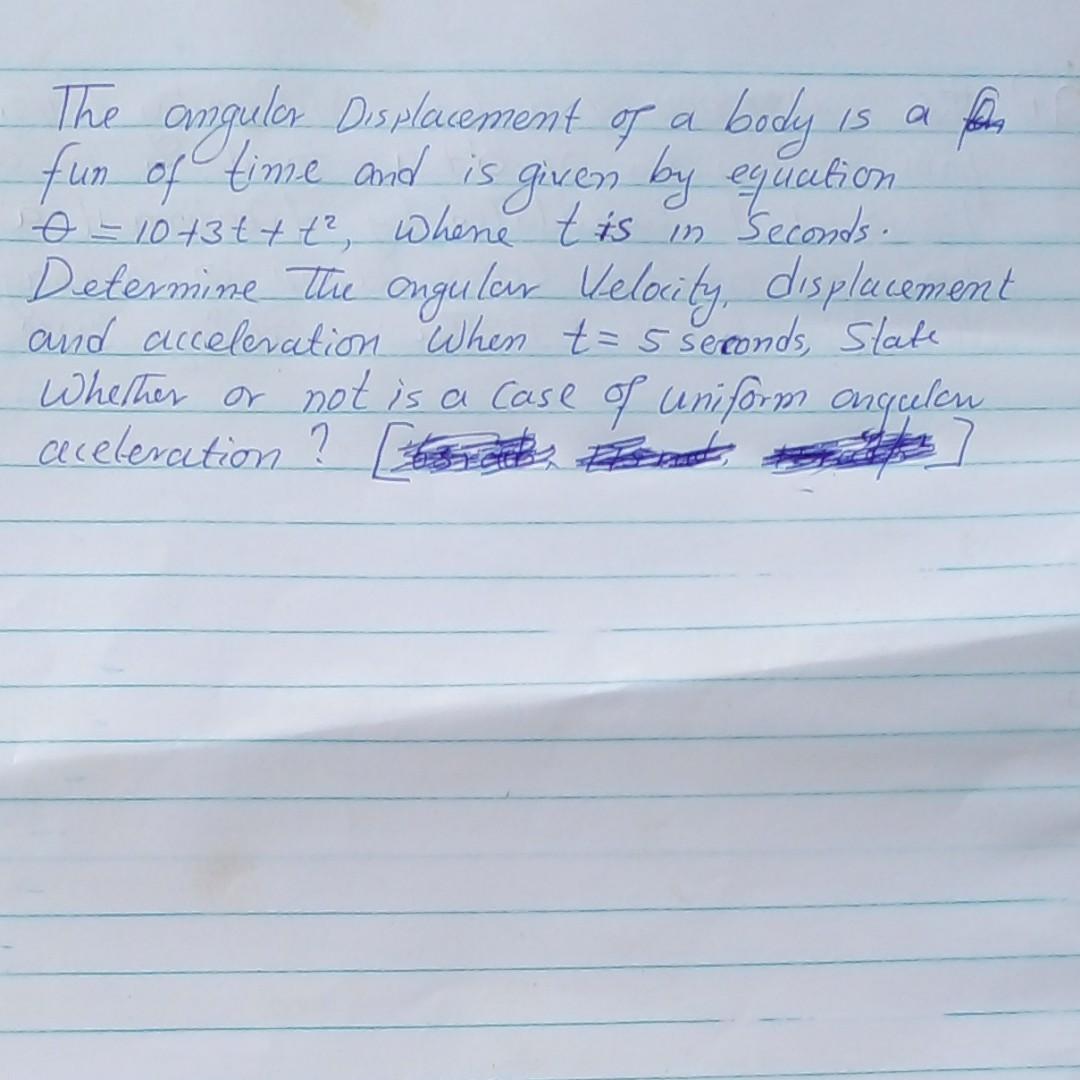 The angular Displacement of a body is a
fun of time and is given by equation
θ = 10 + 3t + t², where t is in Seconds.
Determine The angular Velocity, displacement
and acceleration When t = 5 seconds, State
Whether or not is a case of uniform angular
aceleration ? [ ]